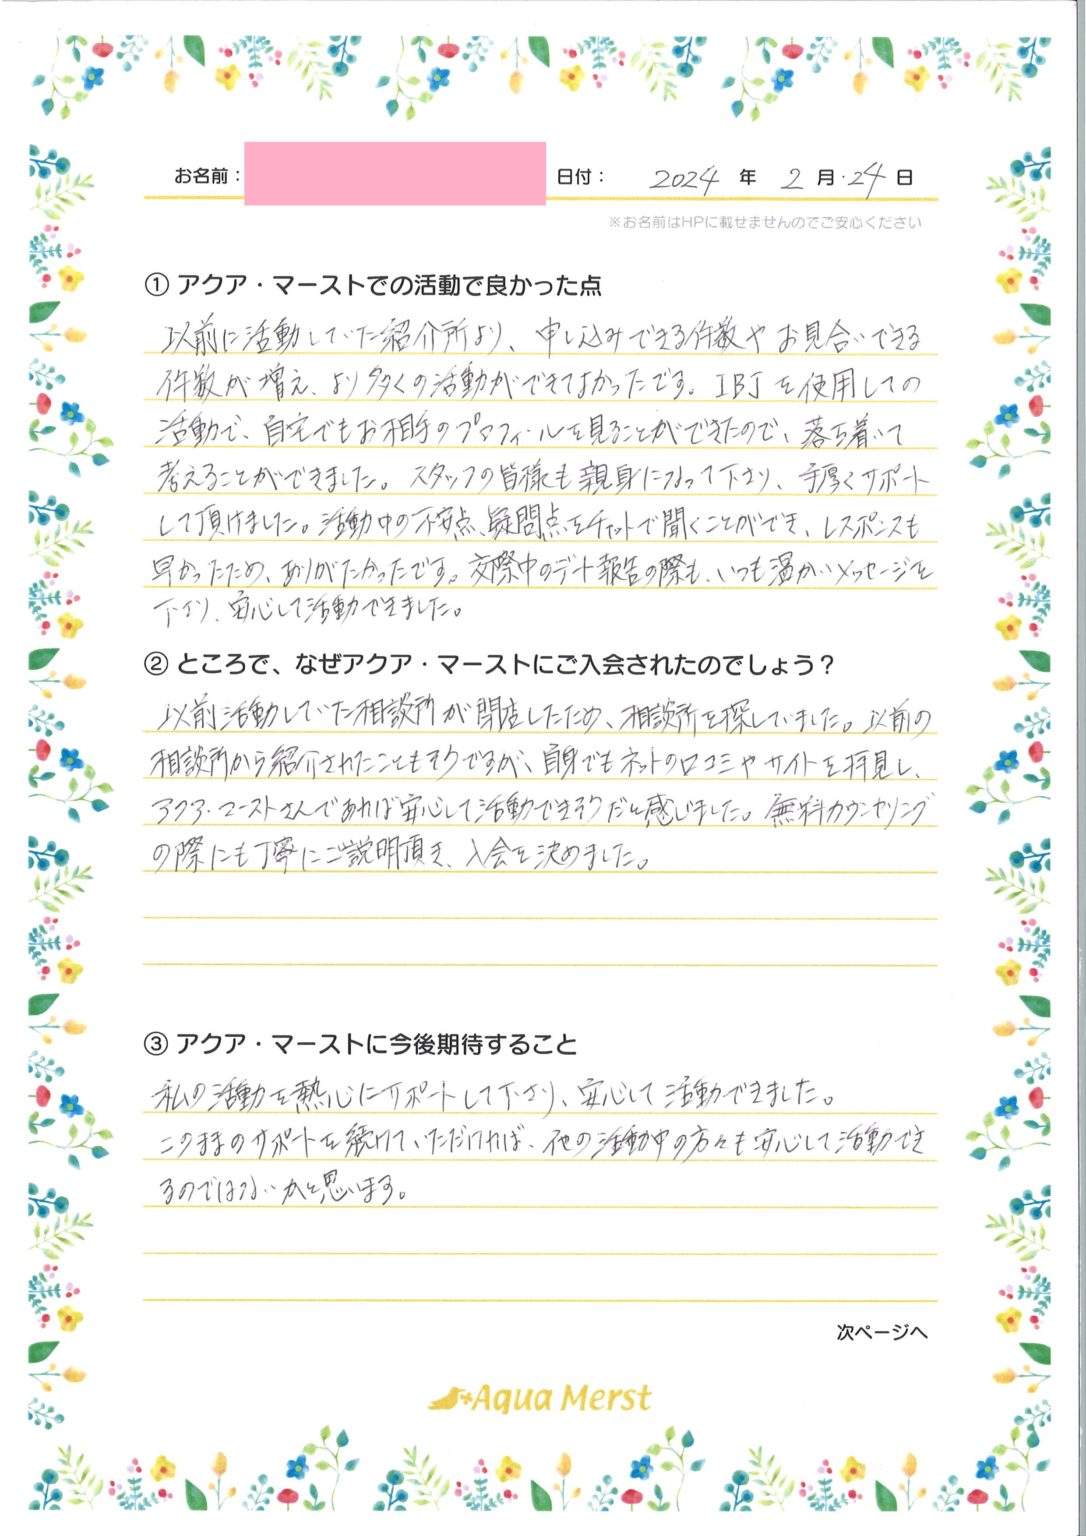 お名前： 日付： 2024 年 2 月・24 日
※お名前はHPに載せませんのでご安心ください
① アクア・マーストでの活動で良かった点
以前に活動していた紹介所より、申し込みできる件数やお見合いできる
件数が増え、より多くの活動ができてよかったです。IBJを使用しての
活動で、自宅でもお相手のプロフィールを見ることができたので、落ち着いて
考えることができました。スタッフの皆様も親身になって下さり、手厚くサポート
して頂けました。活動中の不安点、疑問点をチャットで聞くことができ、レスポンスも
早かったため、ありがたかったです。交際中のデート報告の際も、いつも温かいメッセージを
下さり、安心して活動できました。
② ところで、なぜアクア・マーストにご入会されたのでしょう？
以前活動していた相談所が閉店したため、相談所を探していました。以前の
相談所から紹介されたこともそうですが、自身でもネットの口コミやサイトを拝見し、
アクア・マーストさんであれば安心して活動できそうだと感じました。無料カウンセリング
の際にも丁寧にご説明頂き、入会を決めました。
③ アクア・マーストに今後期待すること
私の活動を熱心にサポートして下さり、安心して活動できました。
このままのサポートを続けていただければ、他の活動中の方々も安心して活動でき
るのではないかと思います。
次ページへ
Aqua Merst